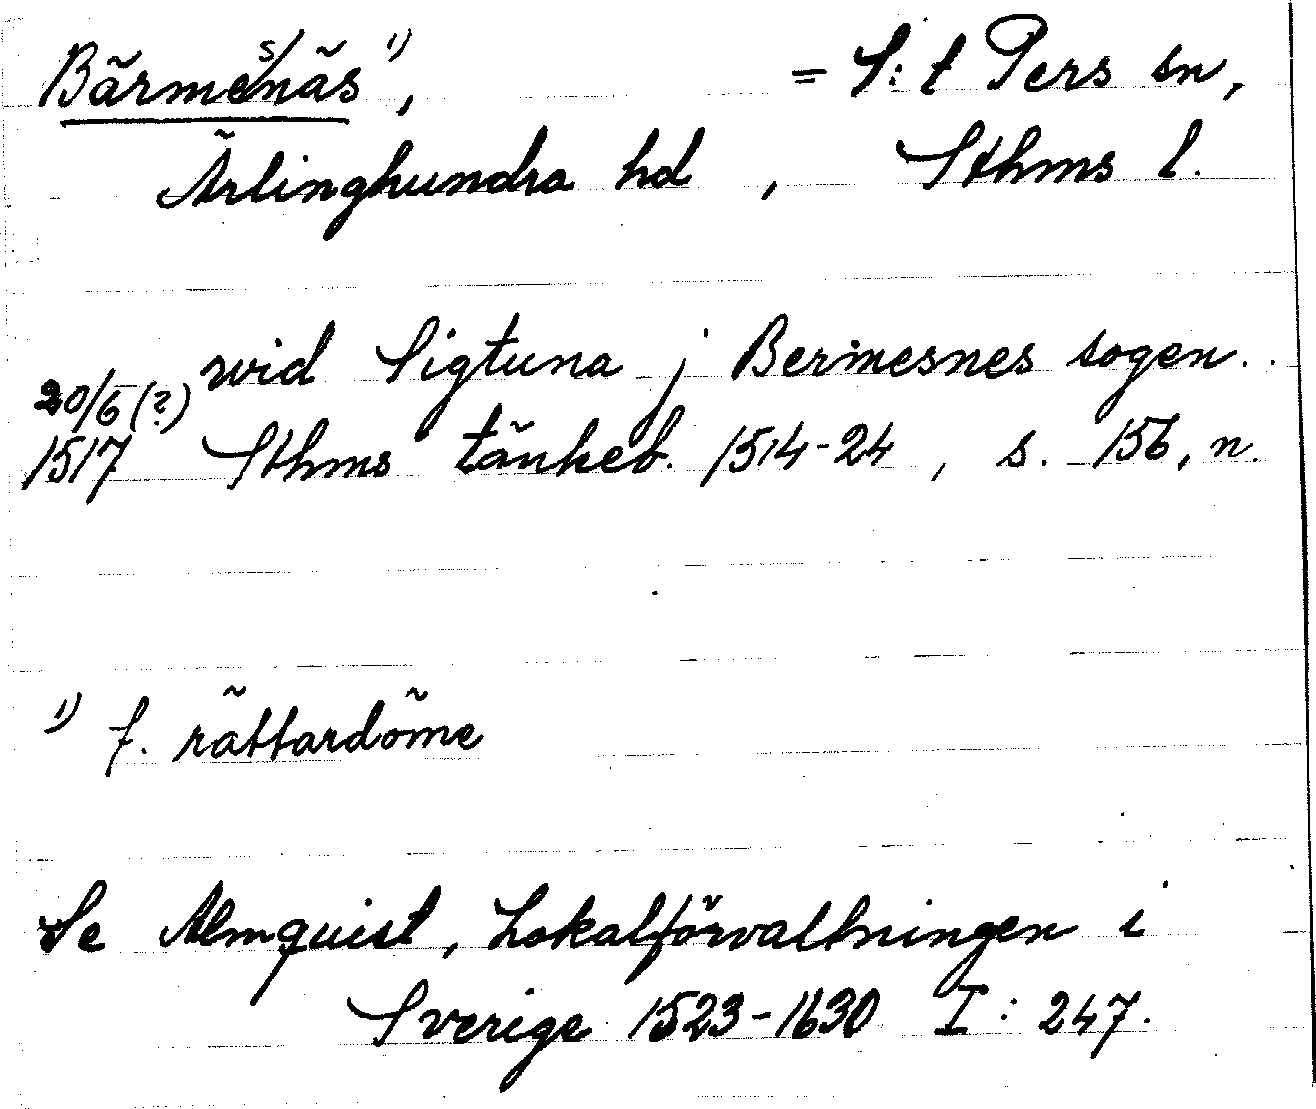 Bärmesnäs ¹), = S:t Pers sn,
Ärlinghundra hd, Sthms l.
wid Sigtuna j Bermesnes sogen..
20/6 (?)
1517 Sthms tänkeb. 1514-24, s. 156, n.
¹) f. rättardöme
Se Almquist, Lokalförvaltningen i
Sverige 1523-1630 I: 247.